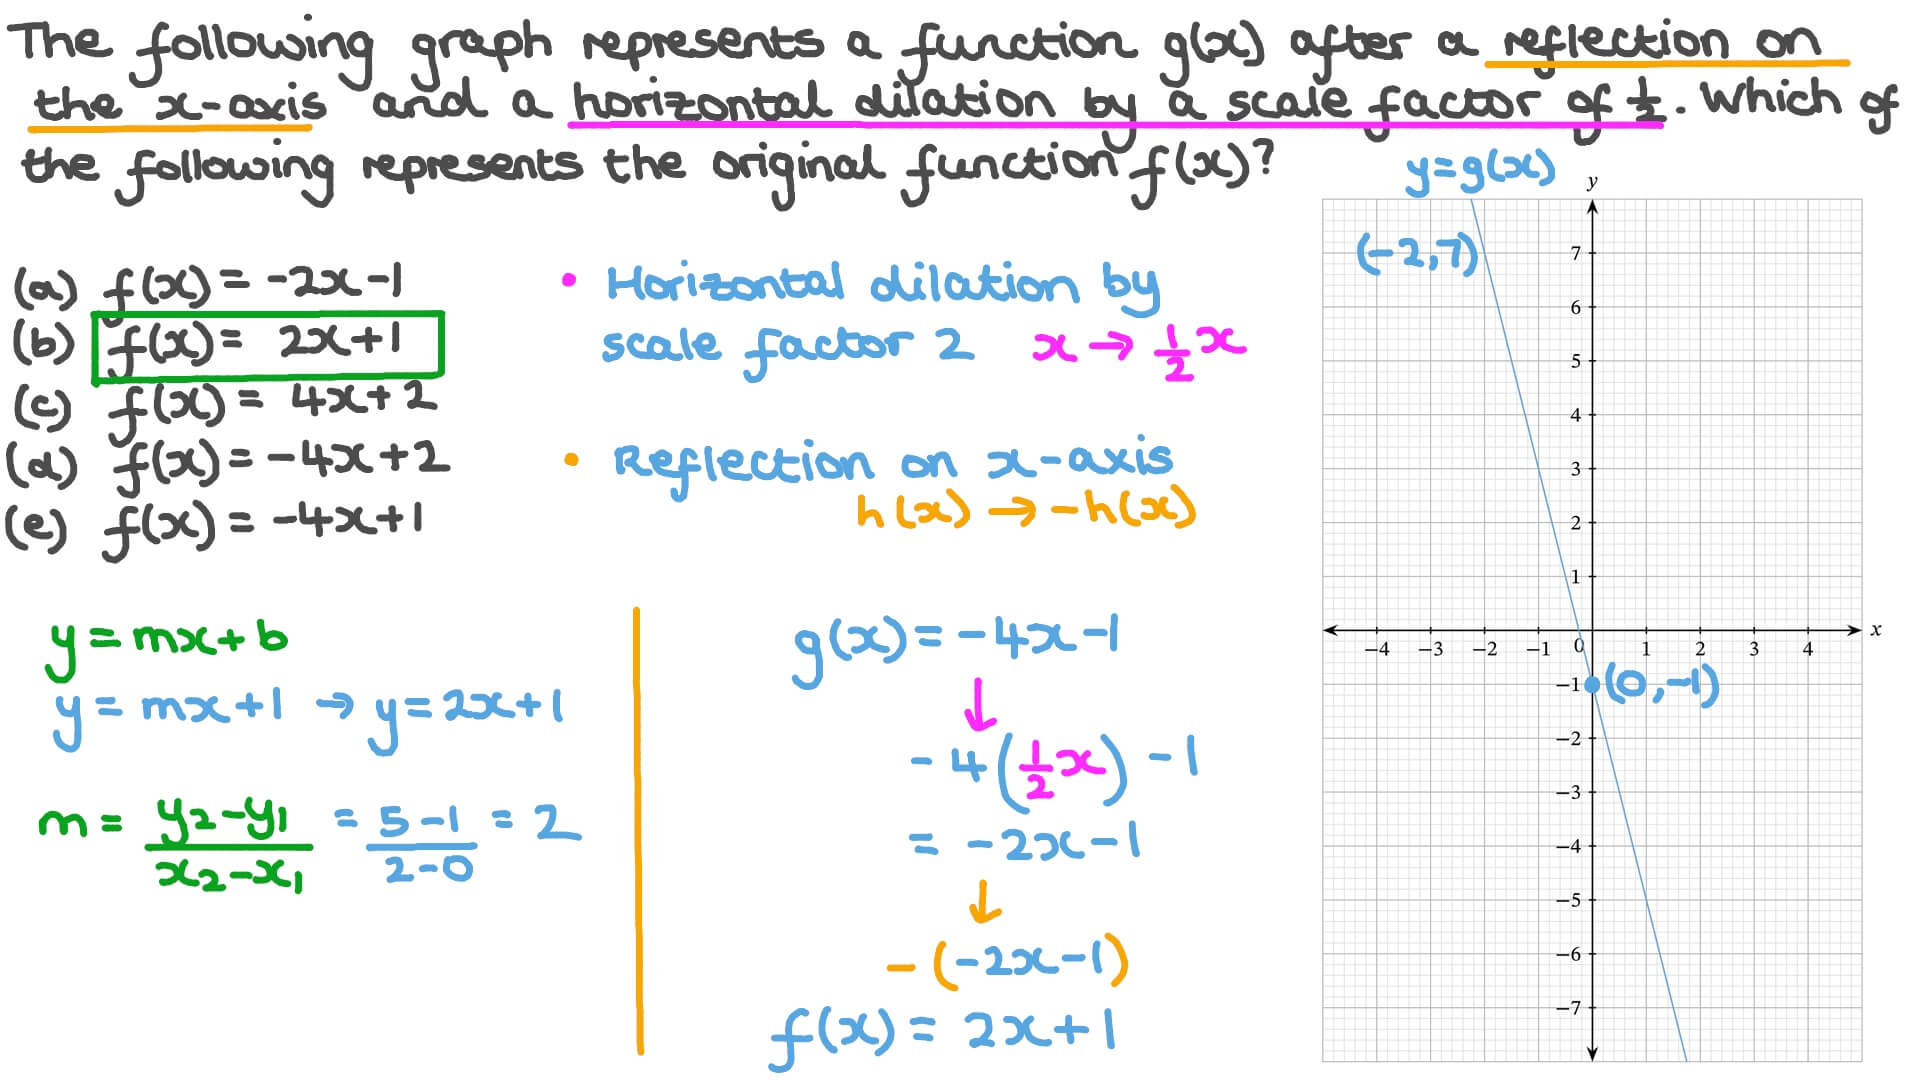 The following graph represents a function g(x) after a reflection on
the x-axis and a horizontal dilation by a scale factor of 1/2. Which of
the following represents the original function f(x)?
(a) f(x) = -2x-1
(b) f(x) = 2x+1
(c) f(x) = 4x+2
(d) f(x) = -4x+2
(e) f(x) = -4x+1
• Horizontal dilation by
scale factor 2 x → 1/2 x
• Reflection on x-axis
h(x) → -h(x)
y = mx + b
y = mx+1 → y = 2x+1
m = y₂-y₁/x₂-x₁ = 5-1/2-0 = 2
g(x) = -4x-1
↓
-4(1/2 x) -1
= -2x-1
↓
-(-2x-1)
f(x) = 2x+1
y=g(x)
y
(-2,7)
7
6
5
4
3
2
1
x
-4 -3 -2 -1 0 1 2 3 4
-1 (0,-1)
-2
-3
-4
-5
-6
-7